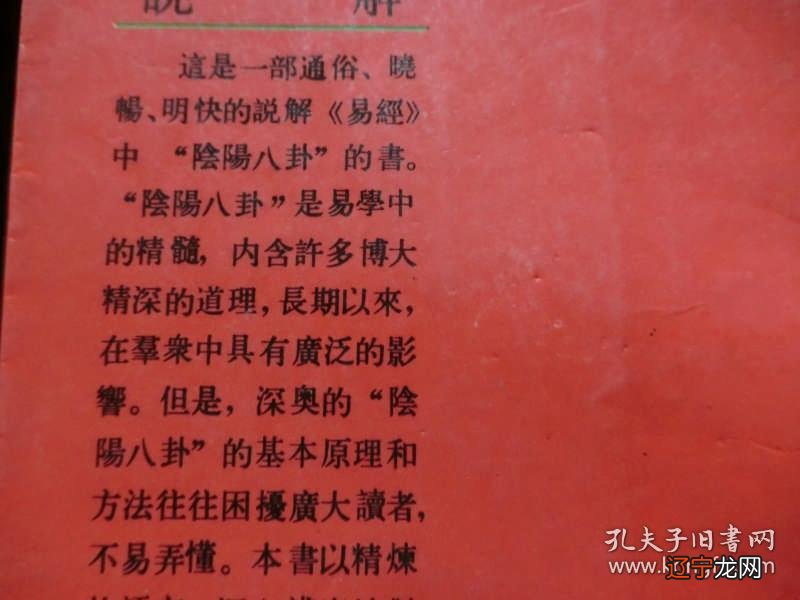 説 解
這是一部通俗、曉
暢、明快的説解《易經》
中“陰陽八卦”的書。
“陰陽八卦”是易學中
的精髓，内含許多博大
精深的道理，長期以來，
在羣衆中具有廣泛的影
響。但是，深奥的“陰
陽八卦”的基本原理和
方法往往困擾廣大讀者，
不易弄懂。本書以精煉
孔夫子旧書网
辽宁龙网